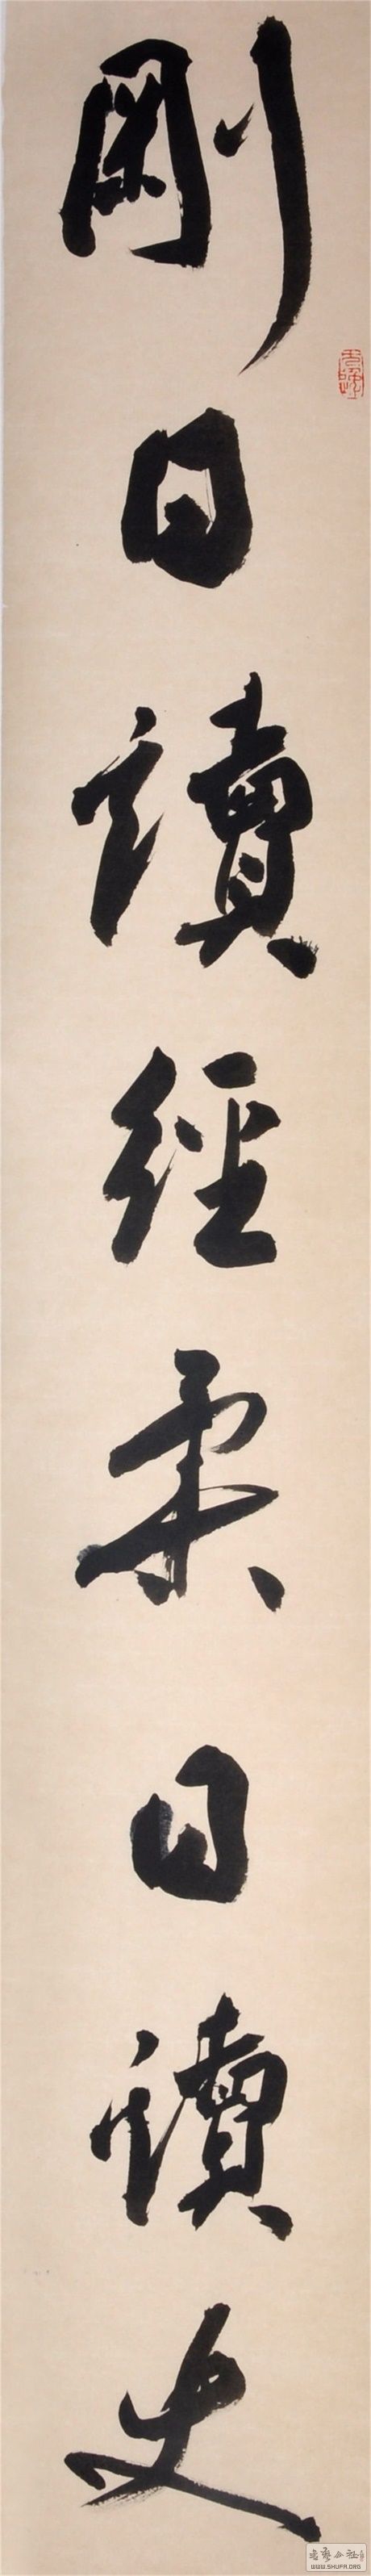 剛日讀經柔日讀史
WWW.SHUFA.ORG